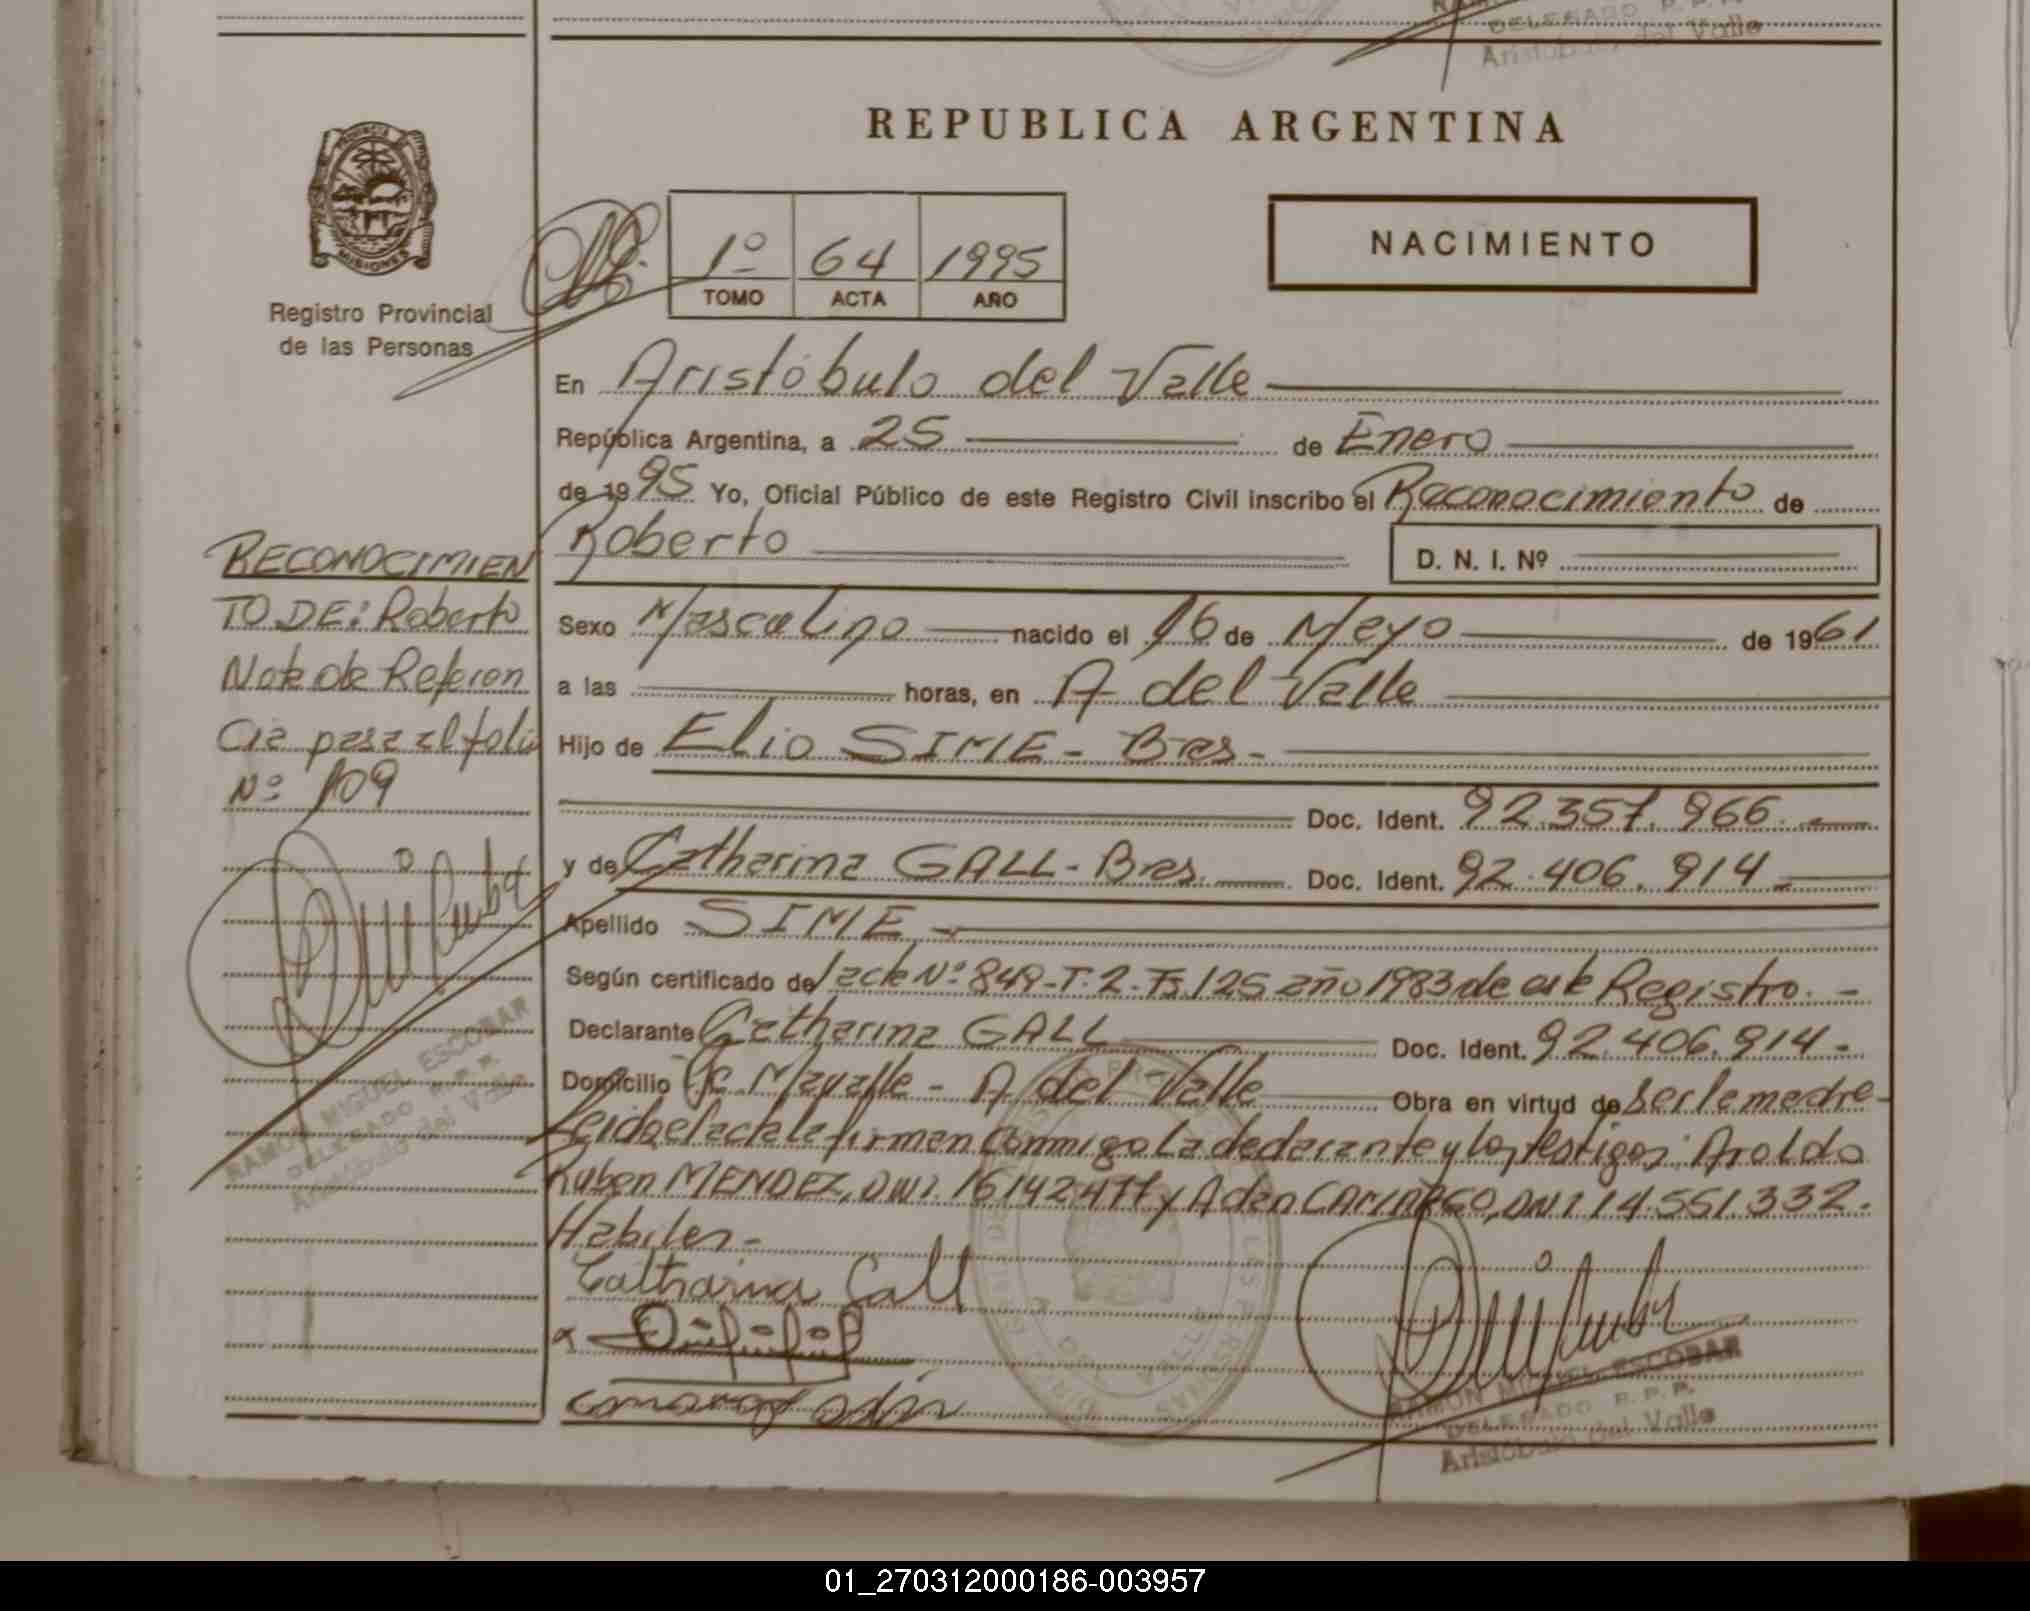 DELEGADO R.P.P.
Aristóbulo del Valle
REPUBLICA ARGENTINA
PROVINCIA
MISIONES
Registro Provincial
de las Personas
1º 64 1995
TOMO ACTA AÑO
NACIMIENTO
En Aristóbulo del Valle
República Argentina, a 25 de Enero
de 1995 Yo, Oficial Público de este Registro Civil inscribo el Reconocimiento de
Roberto D. N. I. Nº
RECONOCIMIEN
TO DE: Roberto
Nota de Referen
cia pasa al folio
Nº 109
Sexo Masculino nacido el 16 de Mayo de 1961
a las horas, en A del Valle
Hijo de Elio SIME - Bras -
Doc. Ident. 92.357.966.-
y de Catharina GALL - Bras. Doc. Ident. 92.406.914-
Apellido SIME -
Según certificado de/ acta Nº 849-T.2-Fs.125 año 1983 de este Registro. -
Declarante Catharina GALL Doc. Ident. 92.406.914-
Domicilio A del Valle Obra en virtud de ser la madre-
Leida el acta la firman conmigo la declarante y los testigos: Aroldo
Ruben MENDEZ, DNI. 16142477 y Aden CAMARGO, DNI 14.551.332.
Habiles -
Catharina Gall
RAMON MIGUEL ESCOBAR
DELEGADO R.P.P.
Aristóbulo del Valle
RAMON MIGUEL ESCOBAR
DELEGADO R.P.P.
Aristóbulo del Valle
01_270312000186-003957